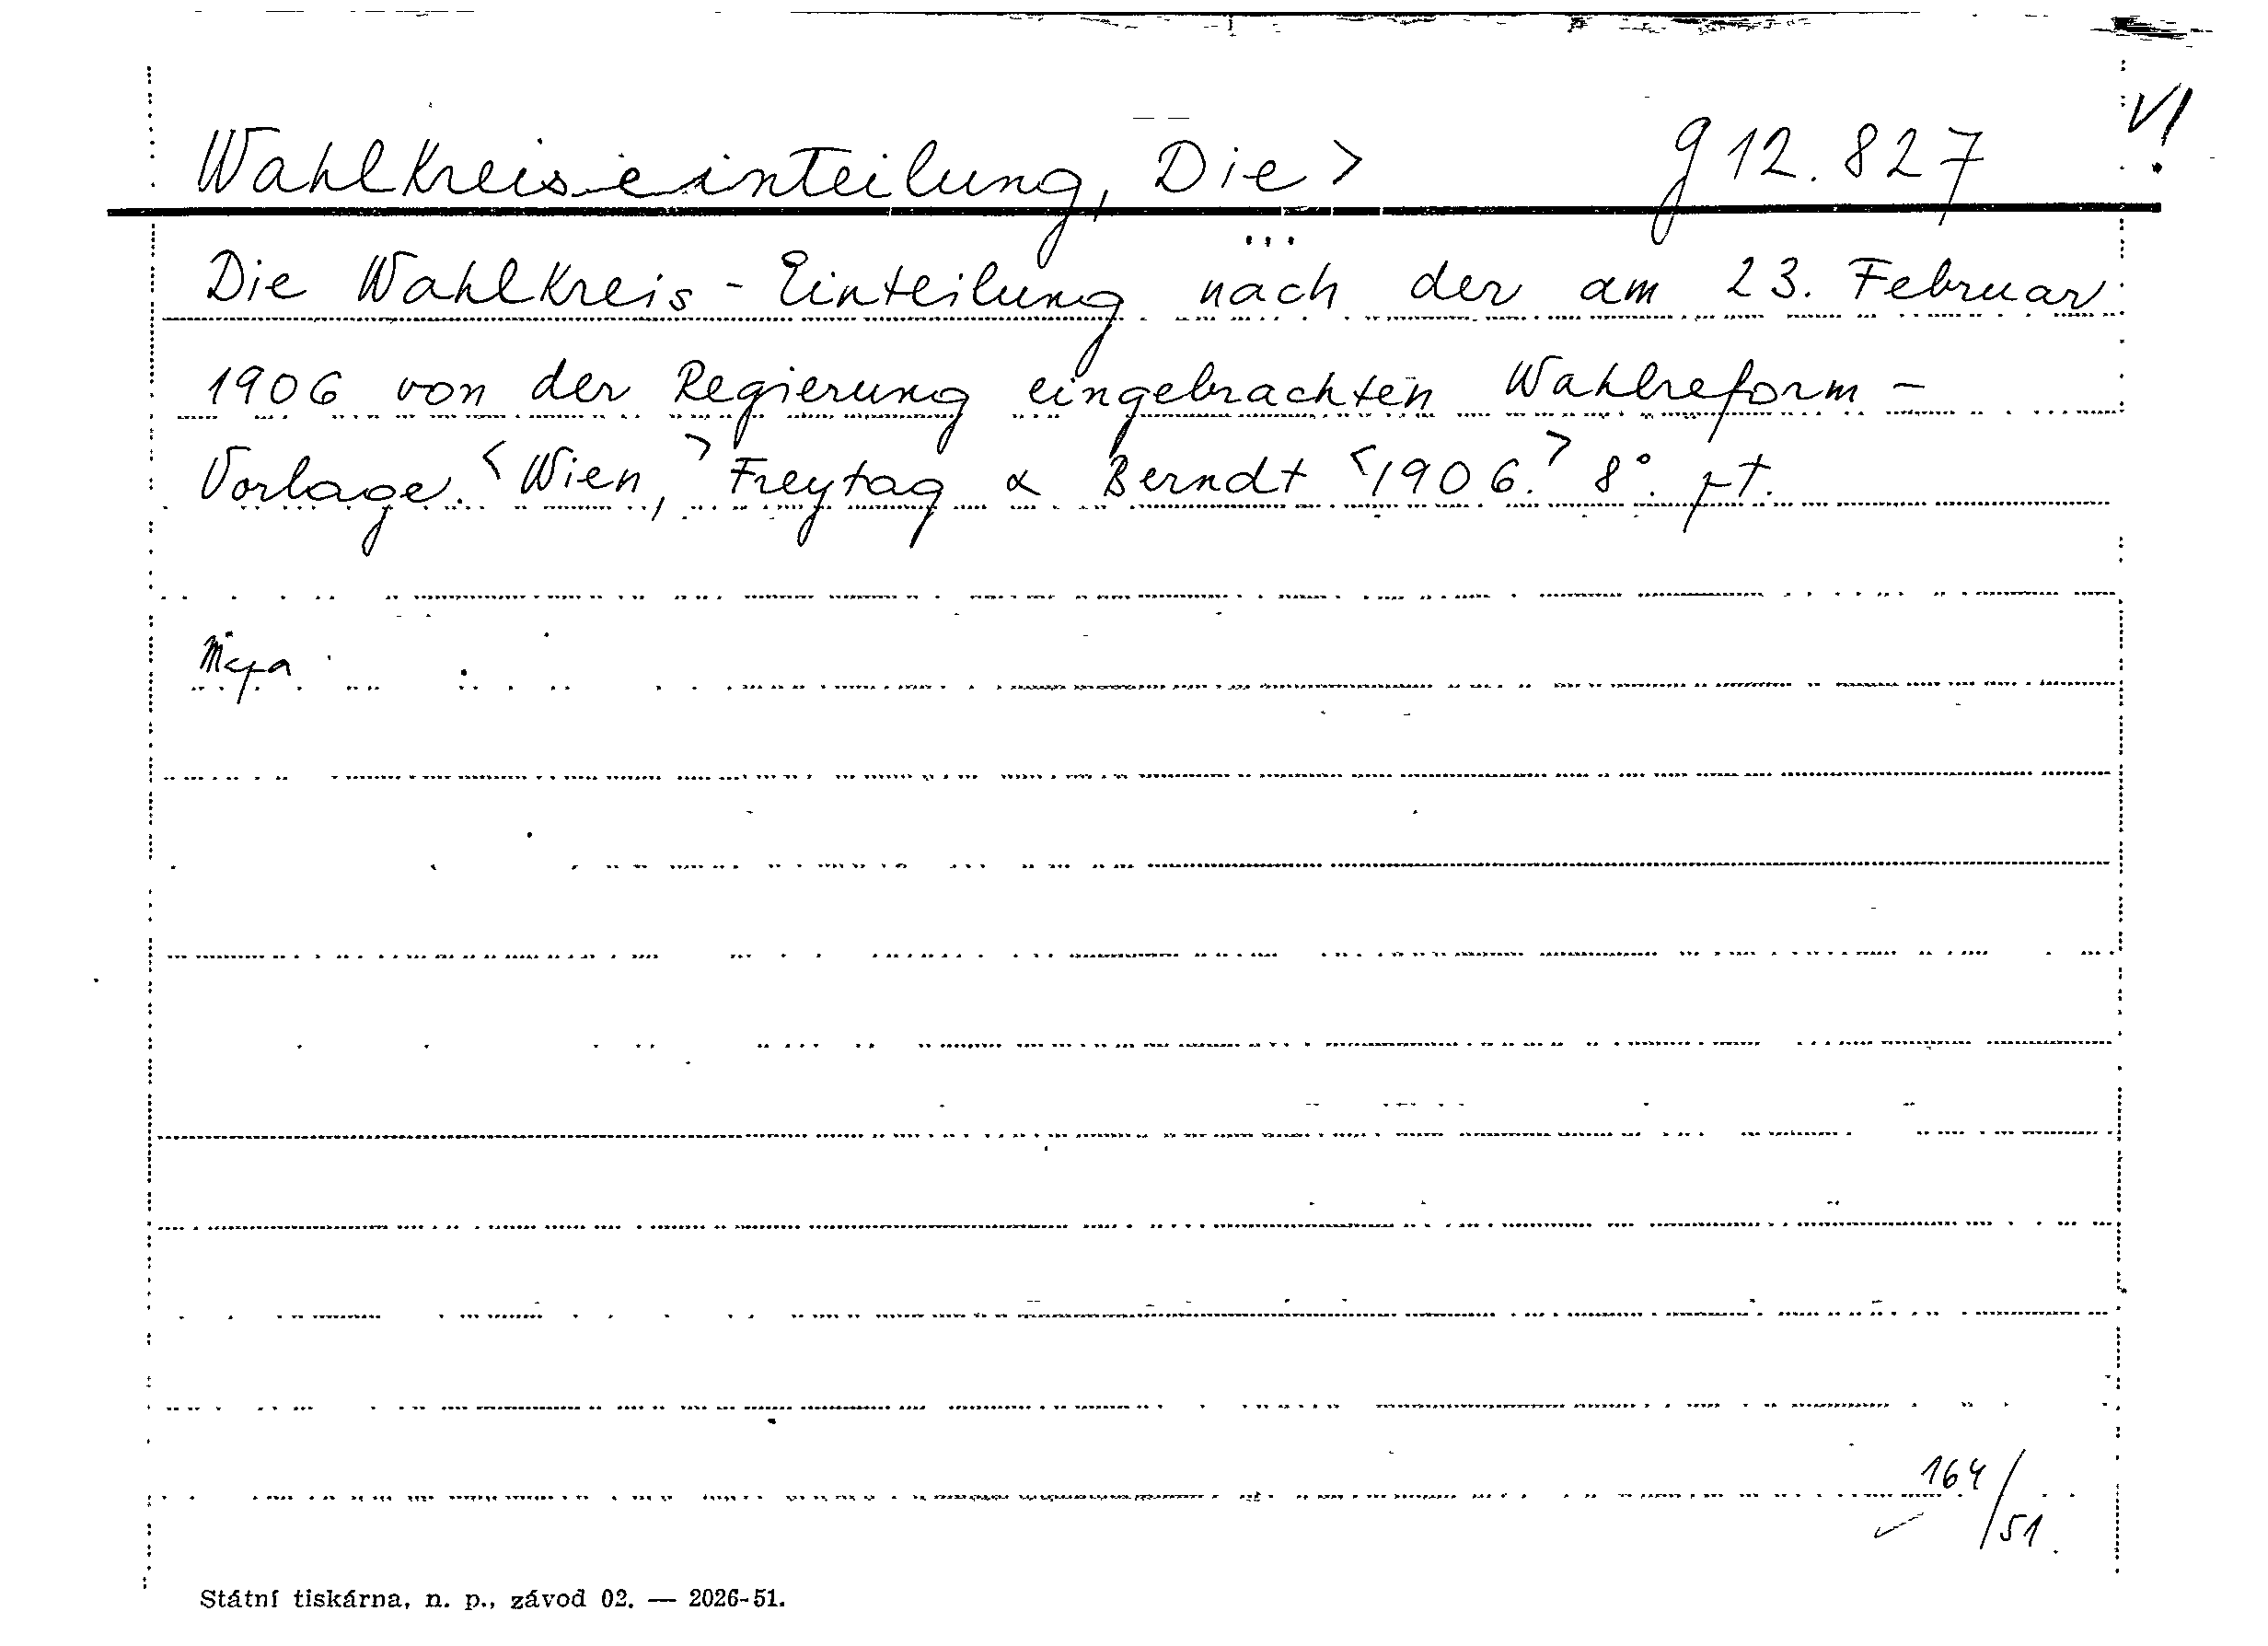 Wahlkreiseinteilung, Die > g 12.827 V!
Die Wahlkreis-Einteilung nach der am 23. Februar
1906 von der Regierung eingebrachten Wahlreform-
Vorlage. <Wien,> Freytag & Berndt <1906.> 8°.
164/51.
Státní tiskárna, n. p., závod 02. — 2026-51.